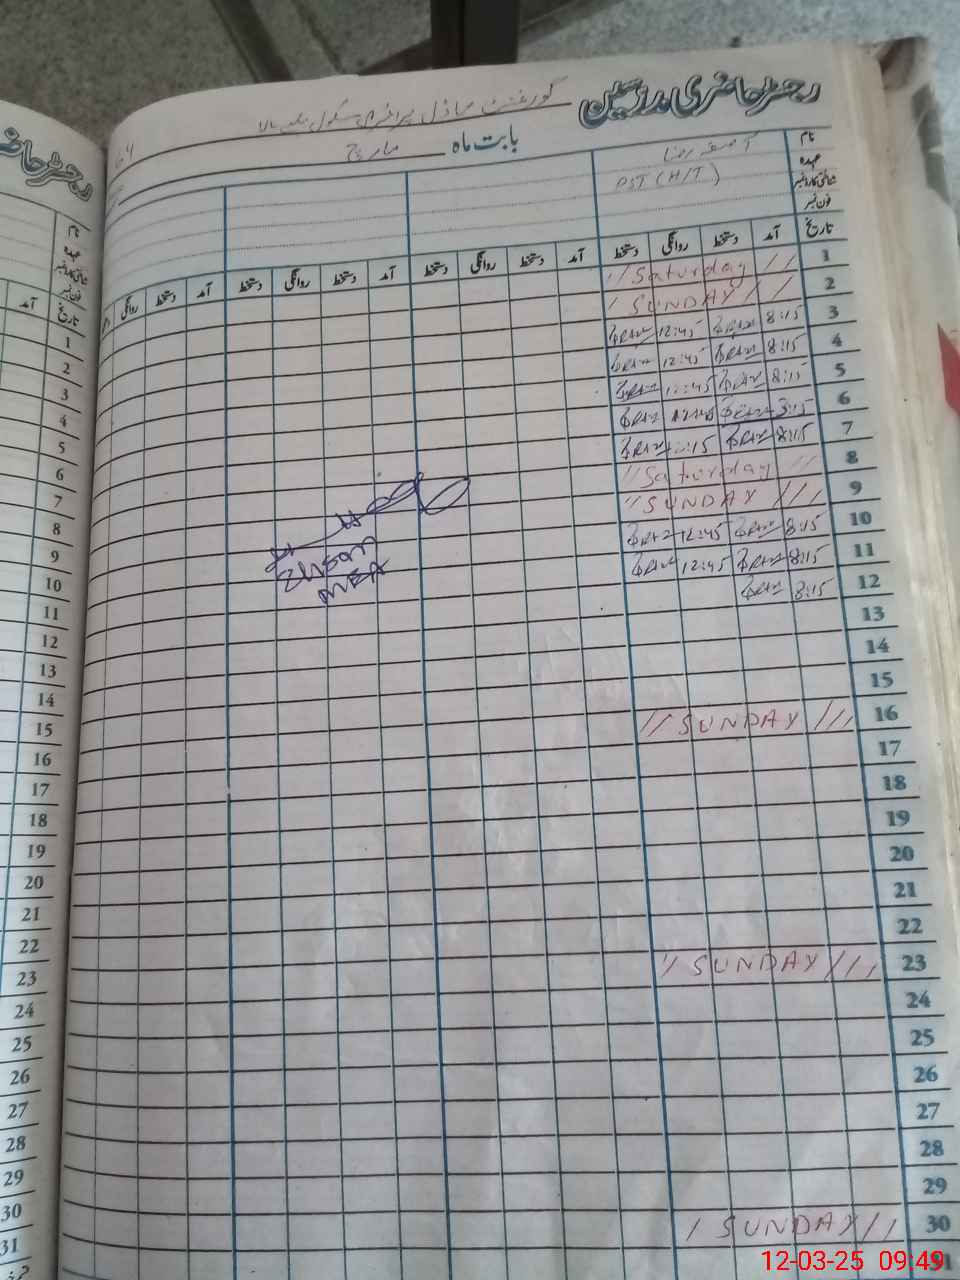 رجسٹر حاضری مدرسین
گورنمنٹ ماڈل پرائمری سکول
بابت ماہ مارچ
نام آصف رضا
عہدہ PST (H/T)
شناختی کارڈ نمبر
فون نمبر
تاریخ آمد دستخط روانگی دستخط آمد دستخط روانگی دستخط آمد دستخط روانگی دستخط آمد دستخط روانگی
1 // Saturday //
2 / SUNDAY / / /
3 8:15 12:45
4 8:15 12:45
5 8:15 12:45
6 8:15 12:45
7 8:15
8 // Saturday //
9 // SUNDAY ///
10 8:15 12:45
11 8:15 12:45
12 8:15
Ehsan
MEA
13
14
15
16 // SUNDAY ///
17
18
19
20
21
22
23 // SUNDAY ///
24
25
26
27
28
29
30 / SUNDAY //
31
رجسٹر حا
نام
عہدہ
شناختی کارڈ نمبر
فون نمبر
تاریخ آمد
1
2
3
4
5
6
7
8
9
10
11
12
13
14
15
16
17
18
19
20
21
22
23
24
25
26
27
28
29
30
31
12-03-25 09:49